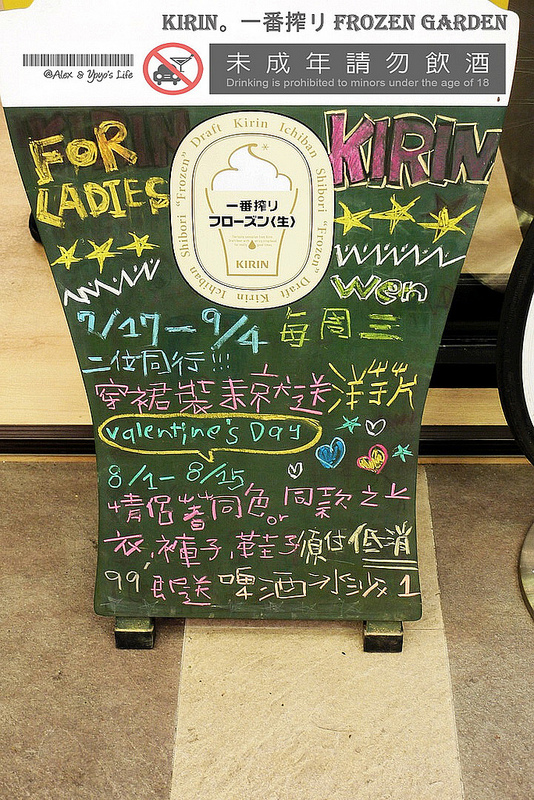 KIRIN。一番搾り FROZEN GARDEN
@Alex & Ypyo's Life
未成年請勿飲酒
Drinking is prohibited to minors under the age of 18
FOR
LADIES
KIRIN
Ichiban Shibori "Frozen" Draft Kirin Ichiban Shibori "Frozen" Draft Kirin
一番搾り
フローズン〈生〉
KIRIN
Wen
7/17-9/4 每周三
二位同行!!!
穿裙裝來就送洋芋片
Valentine's Day
8/1-8/15
情侶著同色or同款之上
衣,褲子,鞋子須付低消
99,即送啤酒冰沙1